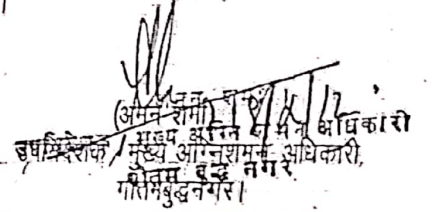 (अमन शर्मा)
मुख्य अग्निशमन अधिकारी
उपनिदेशक/मुख्य अग्निशमन अधिकारी,
गौतम बुद्ध नगर
गौतमबुद्धनगर।